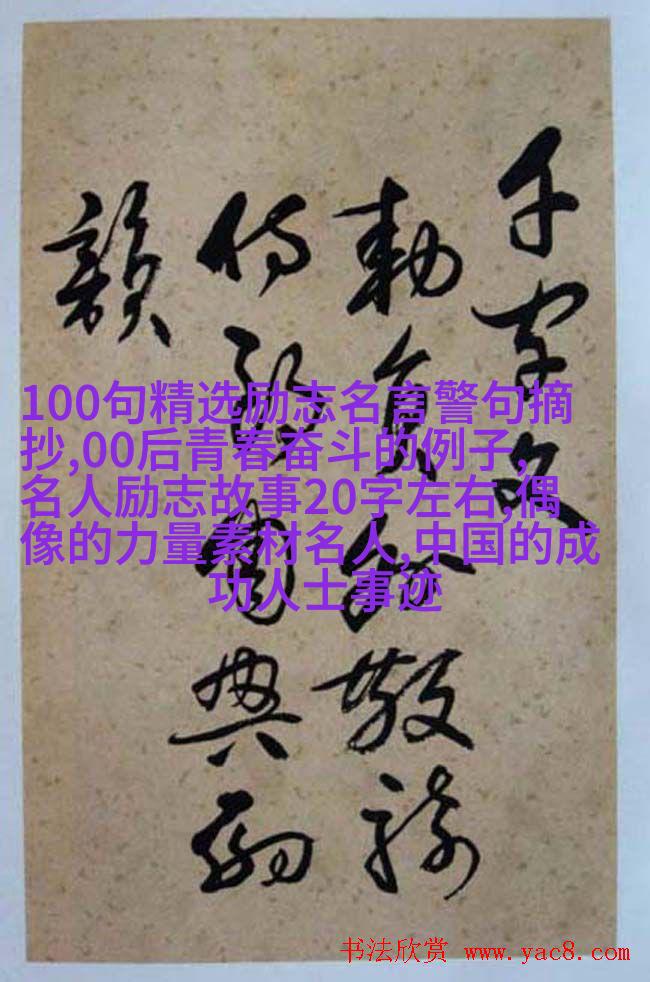 千字文
勅員外散騎
侍郎周興嗣
韻
100句精选励志名言警句摘
抄,00后青春奋斗的例子,
名人励志故事20字左右,偶
像的力量素材名人,中国的成
功人士事迹
书法欣赏 www.yac8.com